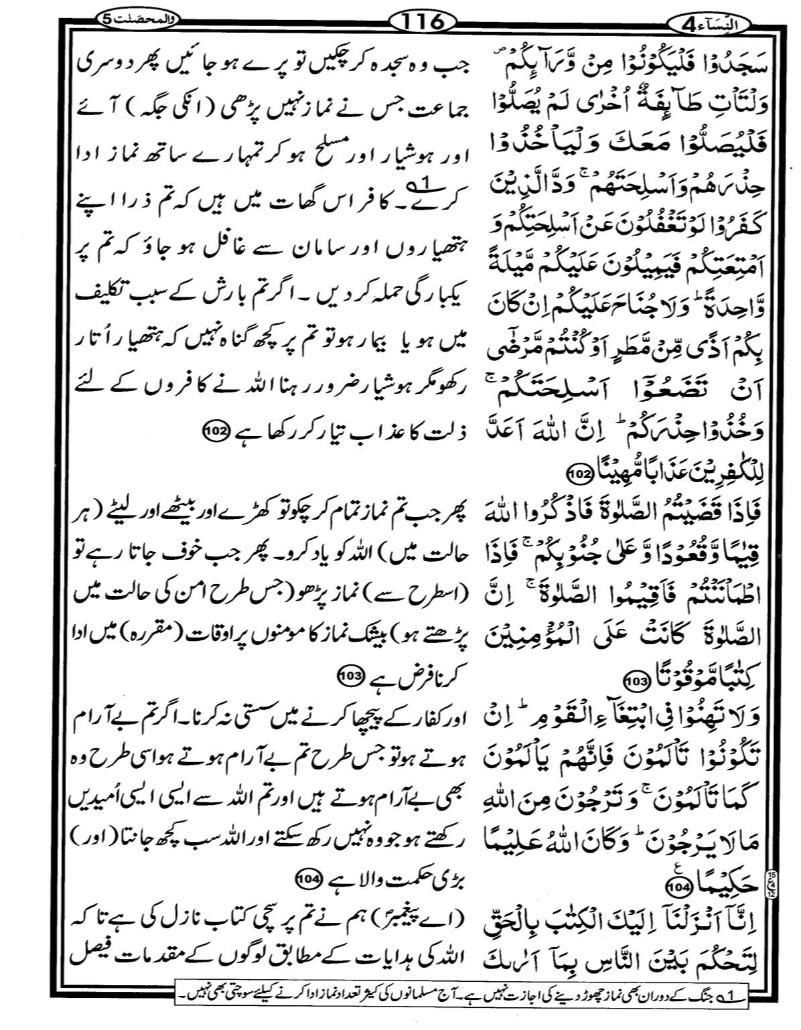 النسآء 4
116
والمحصنت 5
سَجَدُوْا فَلْيَكُوْنُوْا مِنْ وَّرَآىِٕكُمْ ۪
وَلْتَاْتِ طَآىِٕفَةٌ اُخْرٰى لَمْ يُصَلُّوْا
فَلْيُصَلُّوْا مَعَكَ وَلْيَاْخُذُوْا
حِذْرَهُمْ وَاَسْلِحَتَهُمْ ۚ وَدَّ الَّذِيْنَ
كَفَرُوْا لَوْ تَغْفُلُوْنَ عَنْ اَسْلِحَتِكُمْ وَ
اَمْتِعَتِكُمْ فَيَمِيْلُوْنَ عَلَيْكُمْ مَّيْلَةً
وَّاحِدَةً ؕ وَلَا جُنَاحَ عَلَيْكُمْ اِنْ كَانَ
بِكُمْ اَذًى مِّنْ مَّطَرٍ اَوْ كُنْتُمْ مَّرْضٰۤى
اَنْ تَضَعُوْۤا اَسْلِحَتَكُمْ ۚ
وَخُذُوْا حِذْرَكُمْ ؕ اِنَّ اللّٰهَ اَعَدَّ
لِلْكٰفِرِيْنَ عَذَابًا مُّهِيْنًا 102
فَاِذَا قَضَيْتُمُ الصَّلٰوةَ فَاذْكُرُوا اللّٰهَ
قِيٰمًا وَّقُعُوْدًا وَّعَلٰى جُنُوْبِكُمْ ۚ فَاِذَا
اطْمَاْنَنْتُمْ فَاَقِيْمُوا الصَّلٰوةَ ۚ اِنَّ
الصَّلٰوةَ كَانَتْ عَلَى الْمُؤْمِنِيْنَ
كِتٰبًا مَّوْقُوْتًا 103
وَلَا تَهِنُوْا فِى ابْتِغَآءِ الْقَوْمِ ؕ اِنْ
تَكُوْنُوْا تَاْلَمُوْنَ فَاِنَّهُمْ يَاْلَمُوْنَ
كَمَا تَاْلَمُوْنَ ۚ وَتَرْجُوْنَ مِنَ اللّٰهِ
مَا لَا يَرْجُوْنَ ؕ وَكَانَ اللّٰهُ عَلِيْمًا
حَكِيْمًا 104 ع
اِنَّاۤ اَنْزَلْنَاۤ اِلَيْكَ الْكِتٰبَ بِالْحَقِّ
لِتَحْكُمَ بَيْنَ النَّاسِ بِمَاۤ اَرٰىكَ
جب وہ سجدہ کر چکیں تو پرے ہو جائیں پھر دوسری
جماعت جس نے نماز نہیں پڑھی (انکی جگہ) آئے
اور ہوشیار اور مسلح ہو کر تمہارے ساتھ نماز ادا
کرے1؎۔ کافر اس گھات میں ہیں کہ تم ذرا اپنے
ہتھیاروں اور سامان سے غافل ہو جاؤ کہ تم پر
یکبارگی حملہ کر دیں ۔ اگر تم بارش کے سبب تکلیف
میں ہو یا بیمار ہو تو تم پر کچھ گناہ نہیں کہ ہتھیار اُتار
رکھو مگر ہوشیار ضرور رہنا اللہ نے کافروں کے لئے
ذلت کا عذاب تیار کر رکھا ہے 102
پھر جب تم نماز تمام کر چکو تو کھڑے اور بیٹھے اور لیٹے (ہر
حالت میں) اللہ کو یاد کرو۔ پھر جب خوف جاتا رہے تو
(اسطرح سے) نماز پڑھو (جس طرح امن کی حالت میں
پڑھتے ہو) بیشک نماز کا مومنوں پر اوقات (مقررہ) میں ادا
کرنا فرض ہے 103
اور کفار کے پیچھا کرنے میں سستی نہ کرنا۔ اگر تم بے آرام
ہوتے ہو تو جس طرح تم بے آرام ہوتے ہو اسی طرح وہ
بھی بے آرام ہوتے ہیں اور تم اللہ سے ایسی ایسی اُمیدیں
رکھتے ہو جو وہ نہیں رکھ سکتے اور اللہ سب کچھ جانتا (اور)
بڑی حکمت والا ہے 104
(اے پیغمبرؐ) ہم نے تم پر سچی کتاب نازل کی ہے تا کہ
اللہ کی ہدایات کے مطابق لوگوں کے مقدمات فیصل
1؎ جنگ کے دوران بھی نماز چھوڑ دینے کی اجازت نہیں ہے۔ آج مسلمانوں کی کثیر تعداد نماز ادا کرنے کیلئے سوچتی بھی نہیں۔